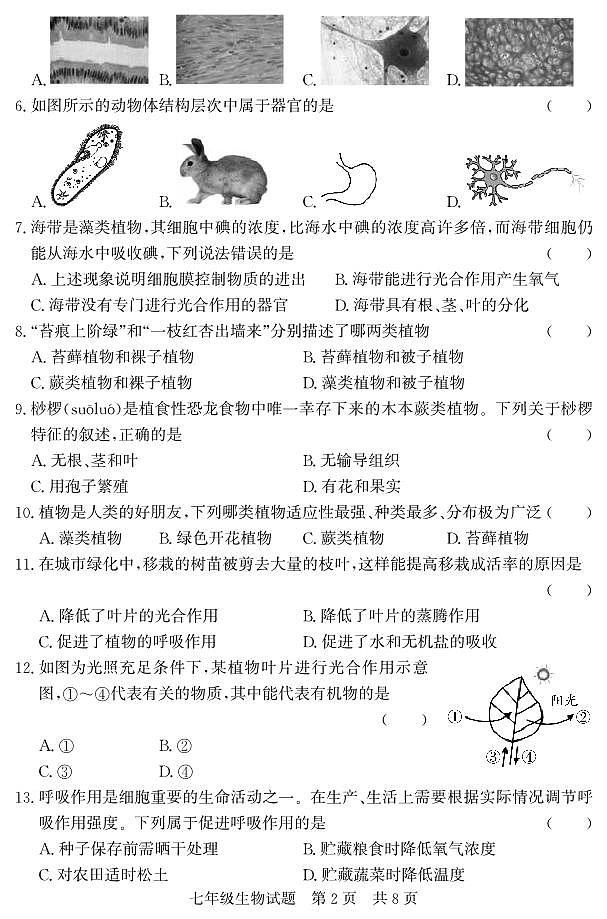 A. B. C. D.
6. 如图所示的动物体结构层次中属于器官的是 (  )
A. B. C. D.
7. 海带是藻类植物,其细胞中碘的浓度,比海水中碘的浓度高许多倍,而海带细胞仍
能从海水中吸收碘,下列说法错误的是 (  )
A. 上述现象说明细胞膜控制物质的进出 B. 海带能进行光合作用产生氧气
C. 海带没有专门进行光合作用的器官 D. 海带具有根、茎、叶的分化
8. “苔痕上阶绿”和“一枝红杏出墙来”分别描述了哪两类植物 (  )
A. 苔藓植物和裸子植物 B. 苔藓植物和被子植物
C. 蕨类植物和裸子植物 D. 藻类植物和被子植物
9. 桫椤(suōluó)是植食性恐龙食物中唯一幸存下来的木本蕨类植物。下列关于桫椤
特征的叙述,正确的是 (  )
A. 无根、茎和叶 B. 无输导组织
C. 用孢子繁殖 D. 有花和果实
10. 植物是人类的好朋友,下列哪类植物适应性最强、种类最多、分布极为广泛 (  )
A. 藻类植物 B. 绿色开花植物 C. 蕨类植物 D. 苔藓植物
11. 在城市绿化中,移栽的树苗被剪去大量的枝叶,这样能提高移栽成活率的原因是
(  )
A. 降低了叶片的光合作用 B. 降低了叶片的蒸腾作用
C. 促进了植物的呼吸作用 D. 促进了水和无机盐的吸收
12. 如图为光照充足条件下,某植物叶片进行光合作用示意
图,①~④代表有关的物质,其中能代表有机物的是
(  )
A. ① B. ②
C. ③ D. ④
阳光
① ②
③ ④
13. 呼吸作用是细胞重要的生命活动之一。在生产、生活上需要根据实际情况调节呼
吸作用强度。下列属于促进呼吸作用的是 (  )
A. 种子保存前需晒干处理 B. 贮藏粮食时降低氧气浓度
C. 对农田适时松土 D. 贮藏蔬菜时降低温度
七年级生物试题 第2页 共8页